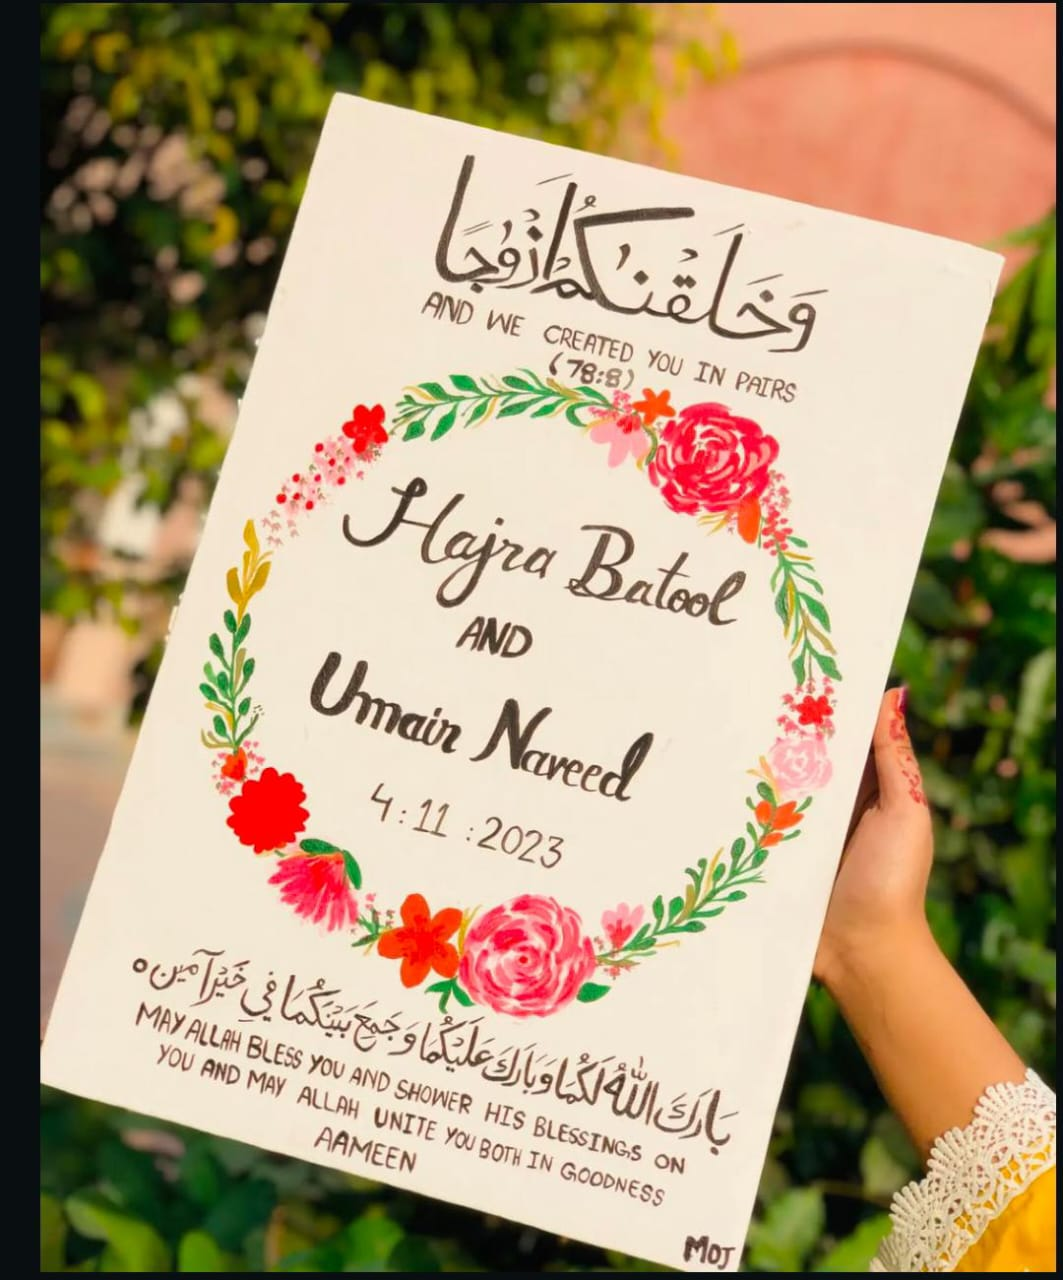 وَخَلَقْنٰكُمْ اَزْوٰجًا
AND WE CREATED YOU IN PAIRS
(78:8)
Hajra Batool
AND
Umair Naveed
4:11:2023
بَارَكَ اللّٰهُ لَكُمَا وَبَارَكَ عَلَيْكُمَا وَجَمَعَ بَيْنَكُمَا فِي خَيْرٍ آمین
MAY ALLAH BLESS YOU AND SHOWER HIS BLESSINGS ON
YOU AND MAY ALLAH UNITE YOU BOTH IN GOODNESS
AAMEEN
MOJ